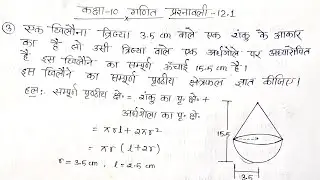 कक्षा-10 गणित प्रश्नावली-12.1
③ एक खिलौना त्रिज्या 3.5 cm वाले एक शंकु के आकार
का है जो उसी त्रिज्या वाले एक अर्धगोले पर अध्यारोपित
है इस खिलौने का सम्पूर्ण ऊंचाई 15.5 cm है।
इस खिलौने का सम्पूर्ण पृष्ठीय क्षेत्रफल ज्ञात कीजिए।
हल: सम्पूर्ण पृष्ठीय क्षे० = शंकु का पृ० क्षे० +
अर्धगोला का पृ० क्षे०
= πrl + 2πr²
= πr (l + 2r)
r = 3.5 cm, l = 2.5 cm
15.5
3.5